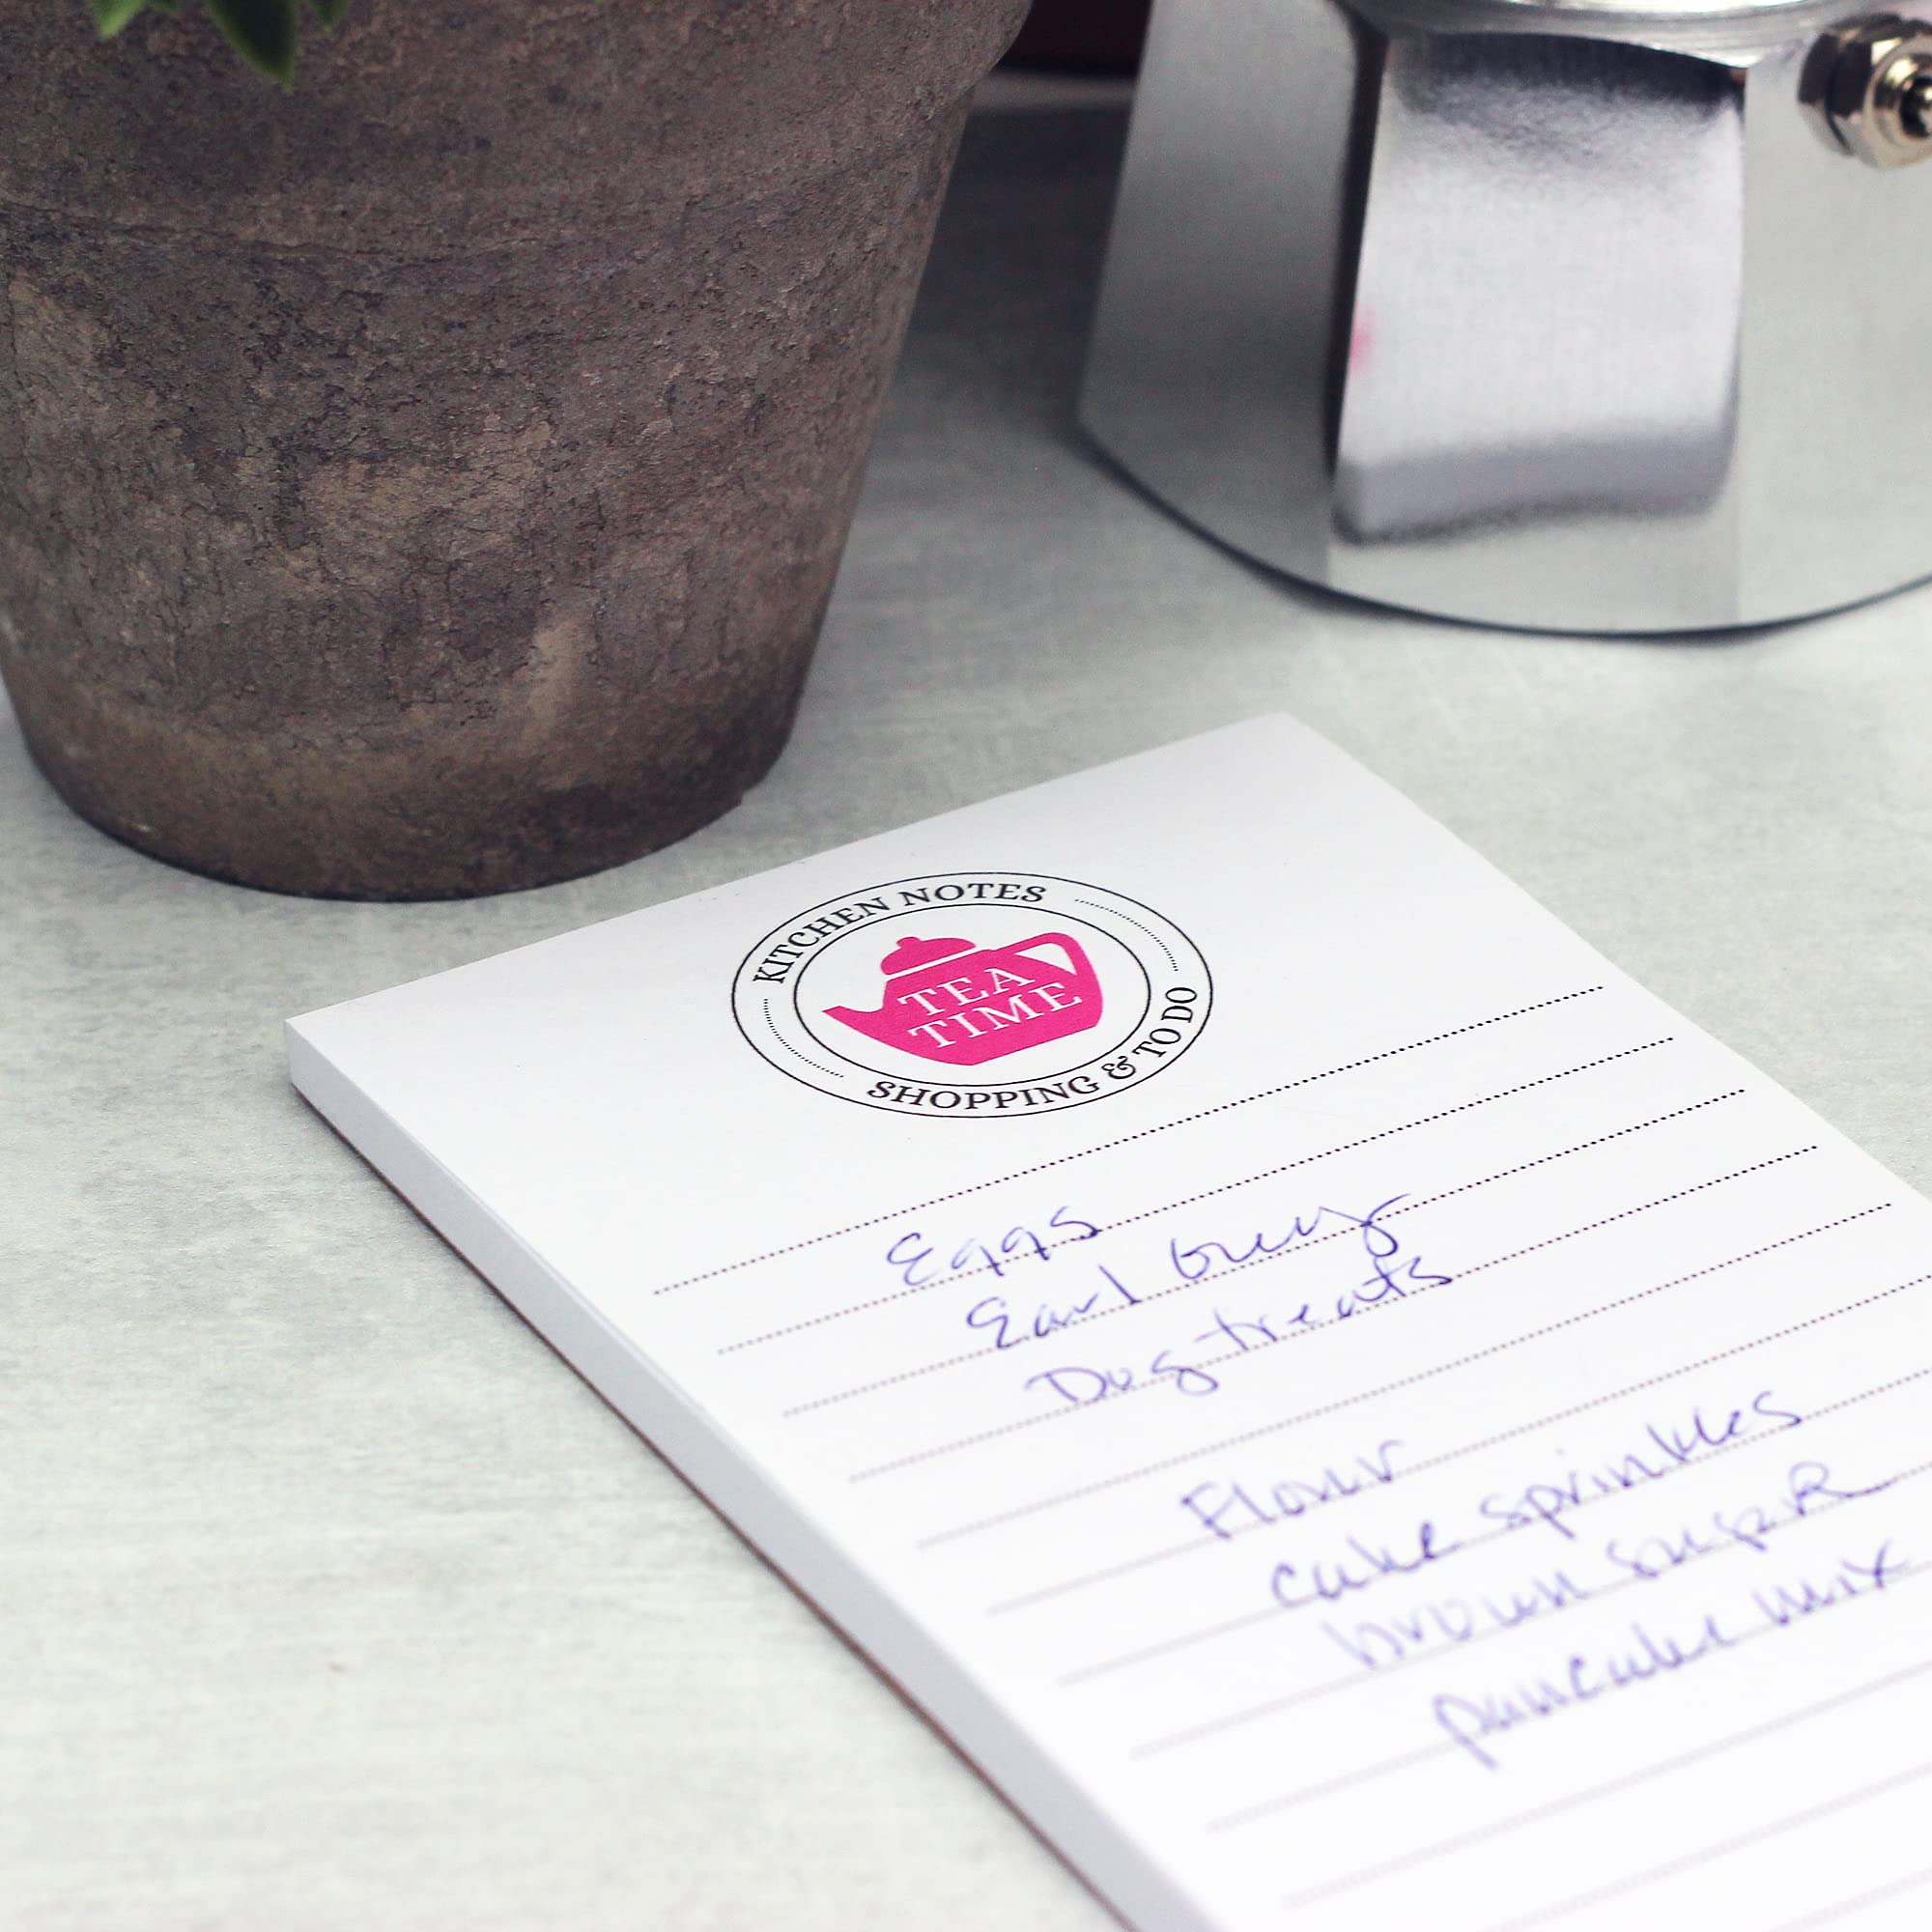 KITCHEN NOTES
TEA
TIME
SHOPPING & TO DO
Eggs
Earl Grey
Dog treats
Flour
cake sprinkles
brown sugar
pancake mix